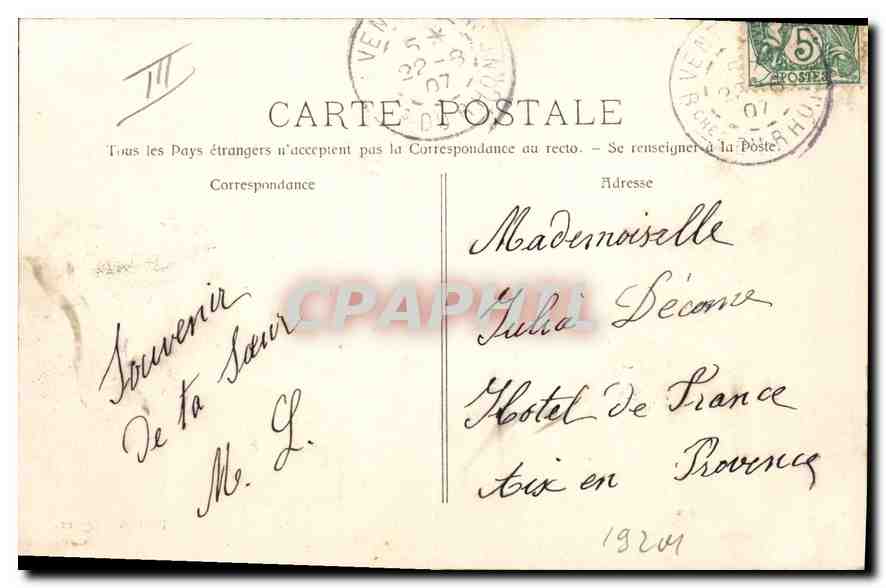 III
CARTE POSTALE
Tous les Pays étrangers n'acceptent pas la Correspondance au recto. - Se renseigner à la Poste.
Correspondance
Souvenir
de ta Sœur
M. L.
Adresse
Mademoiselle
Julia Décome
Hotel de France
Aix en Provence
19201
5
POSTES
5 *
22 - 8
07
VEN
RHONE
CPAPHIL